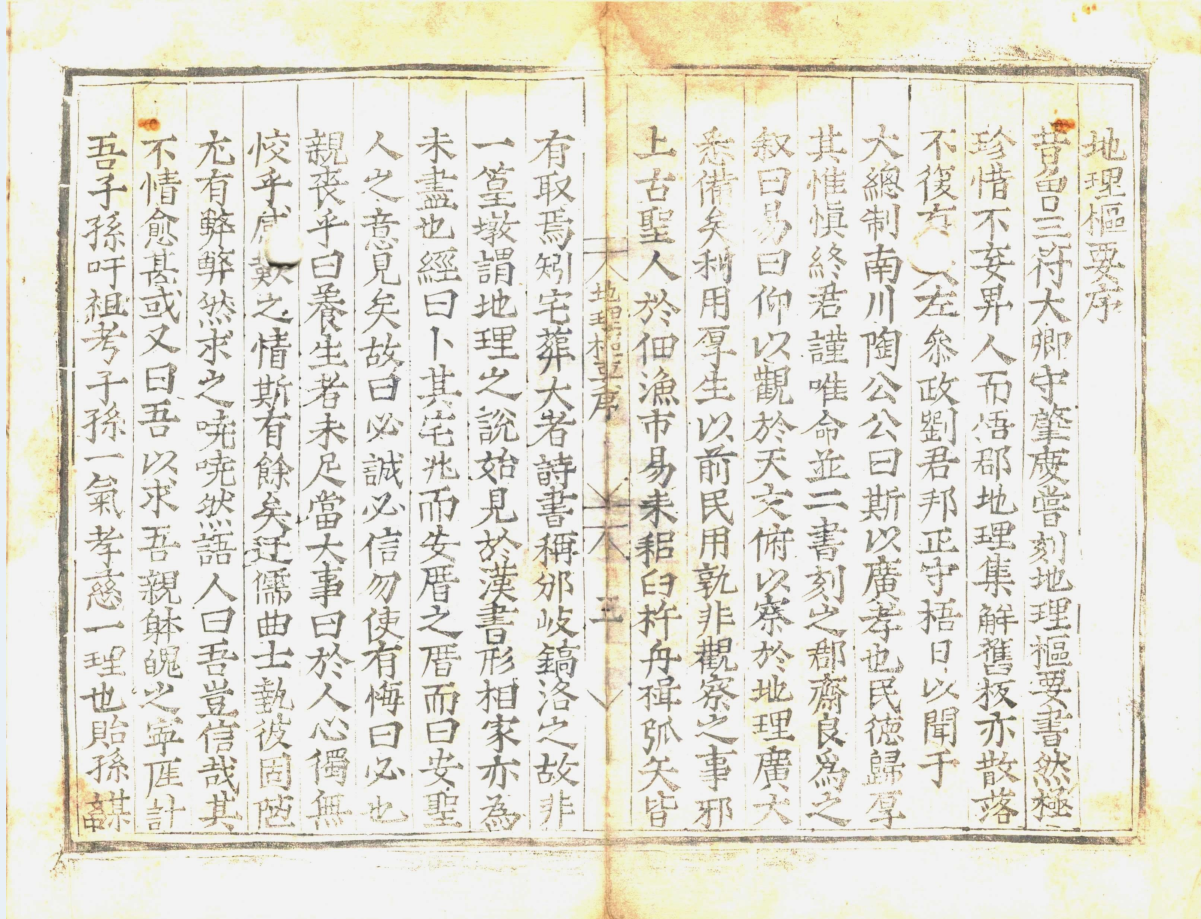 地理樞要序
昔曾三符大卿守肇慶嘗刻地理樞要書然極
珍惜不妄畀人而悟郡地理集解舊板亦散落
不復左叅政劉君邦正守梧日以聞于
大總制南川陶公公曰斯以廣孝也民德歸厚
其惟愼終君謹唯命並二書刻之郡齋良爲之
叙曰易曰仰以觀於天文俯以察於地理廣大
悉備矣利用厚生以前民用孰非觀察之事邪
上古聖人於佃漁市易耒耜臼杵舟楫弧矢皆
地理樞要序
三
有取焉矧宅葬大者詩書稱邠岐鎬洛之故非
一篁墩謂地理之說始見於漢書形相家亦為
未盡也經曰卜其宅兆而安厝之厝而曰安聖
人之意見矣故曰必誠必信勿使有悔曰必也
親喪乎曰養生者未足當大事曰於人心獨無
恔乎之情斯有餘矣迂儒曲士執彼固陋
尤有弊弊然求之嘵嘵然語人曰吾豈信哉其
不情愈甚或又曰吾以求吾親躰魄之寧匪計
吾子孫吁祖考子孫一氣孝慈一理也貽孫謀